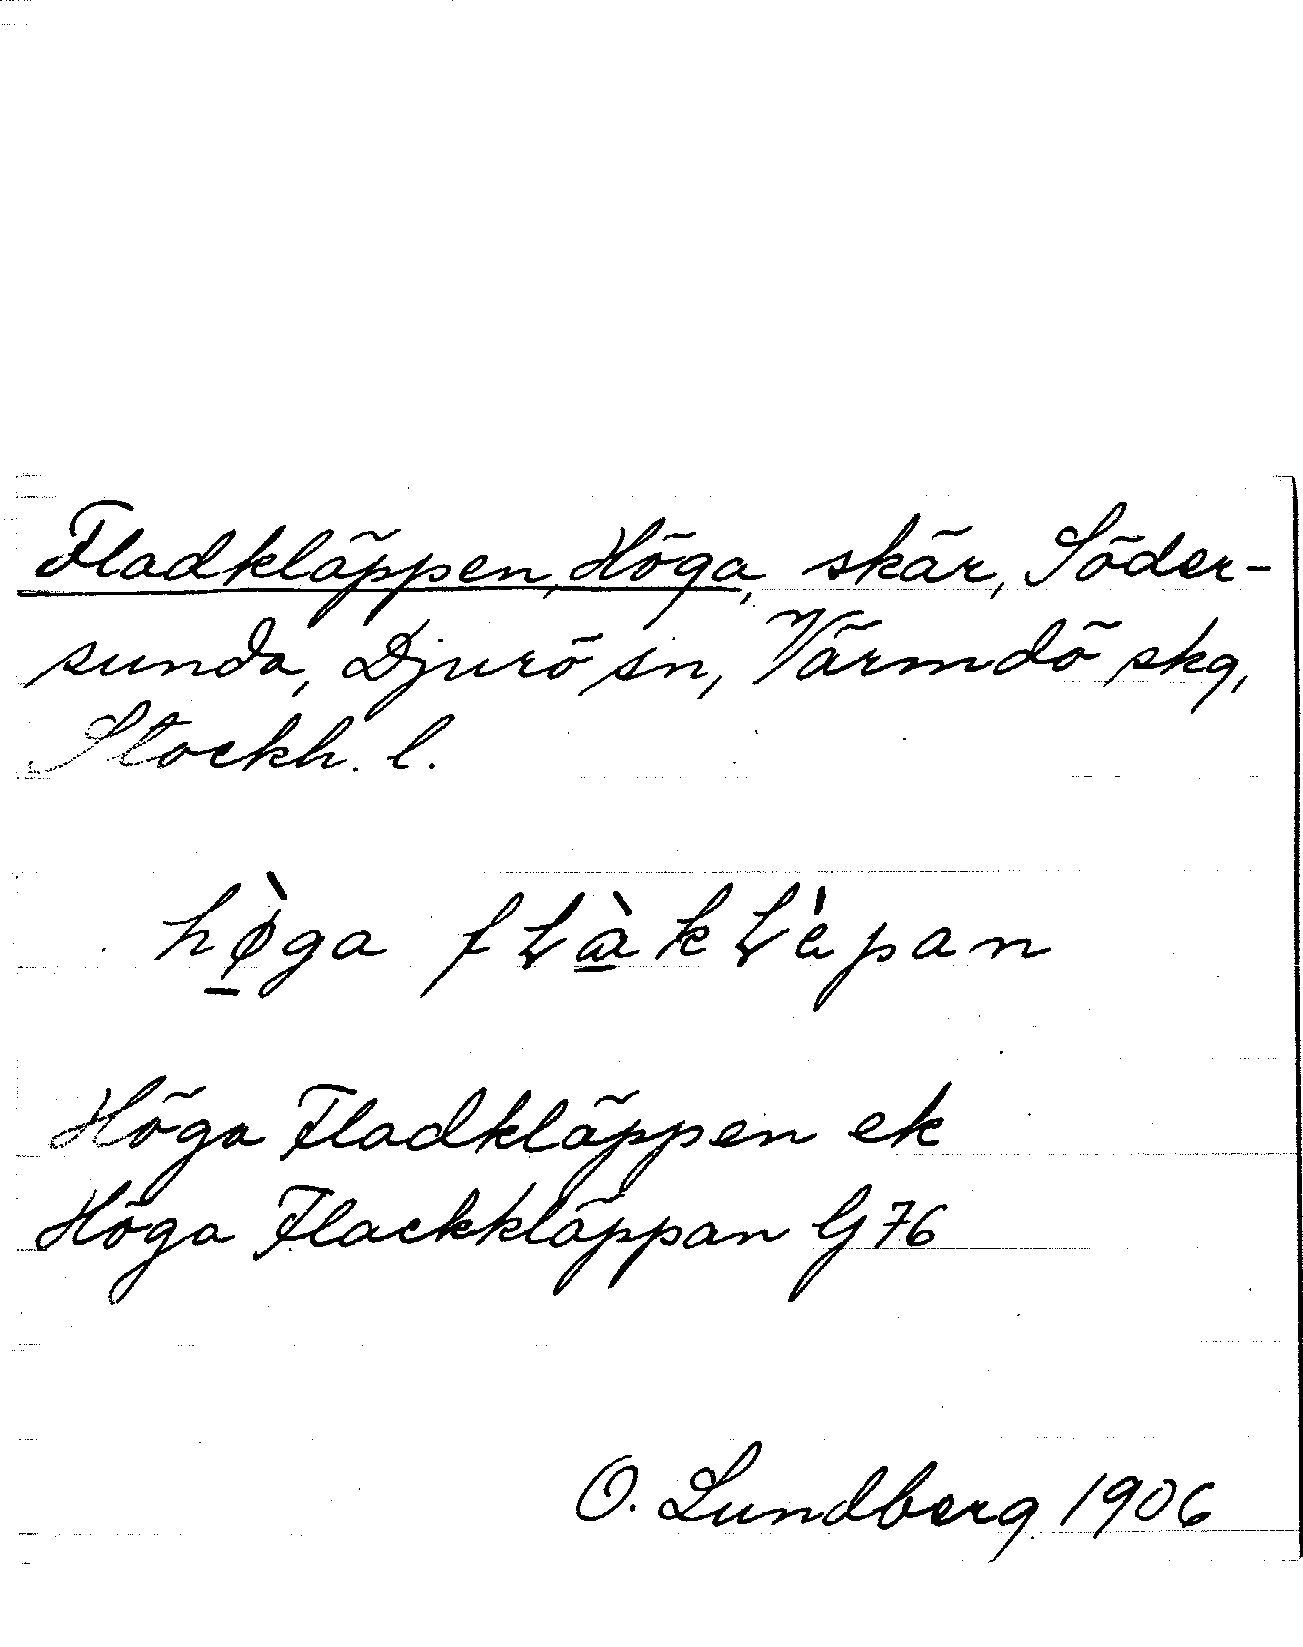 Fladkläppen, Höga, skär, Söder-
sunda, Djurö sn, Värmdö skg,
Stockh. l.
hø̀ga fɫàkɫèpan
Höga Fladkläppen ek
Höga Flackkläppan G 76
O. Lundberg 1906